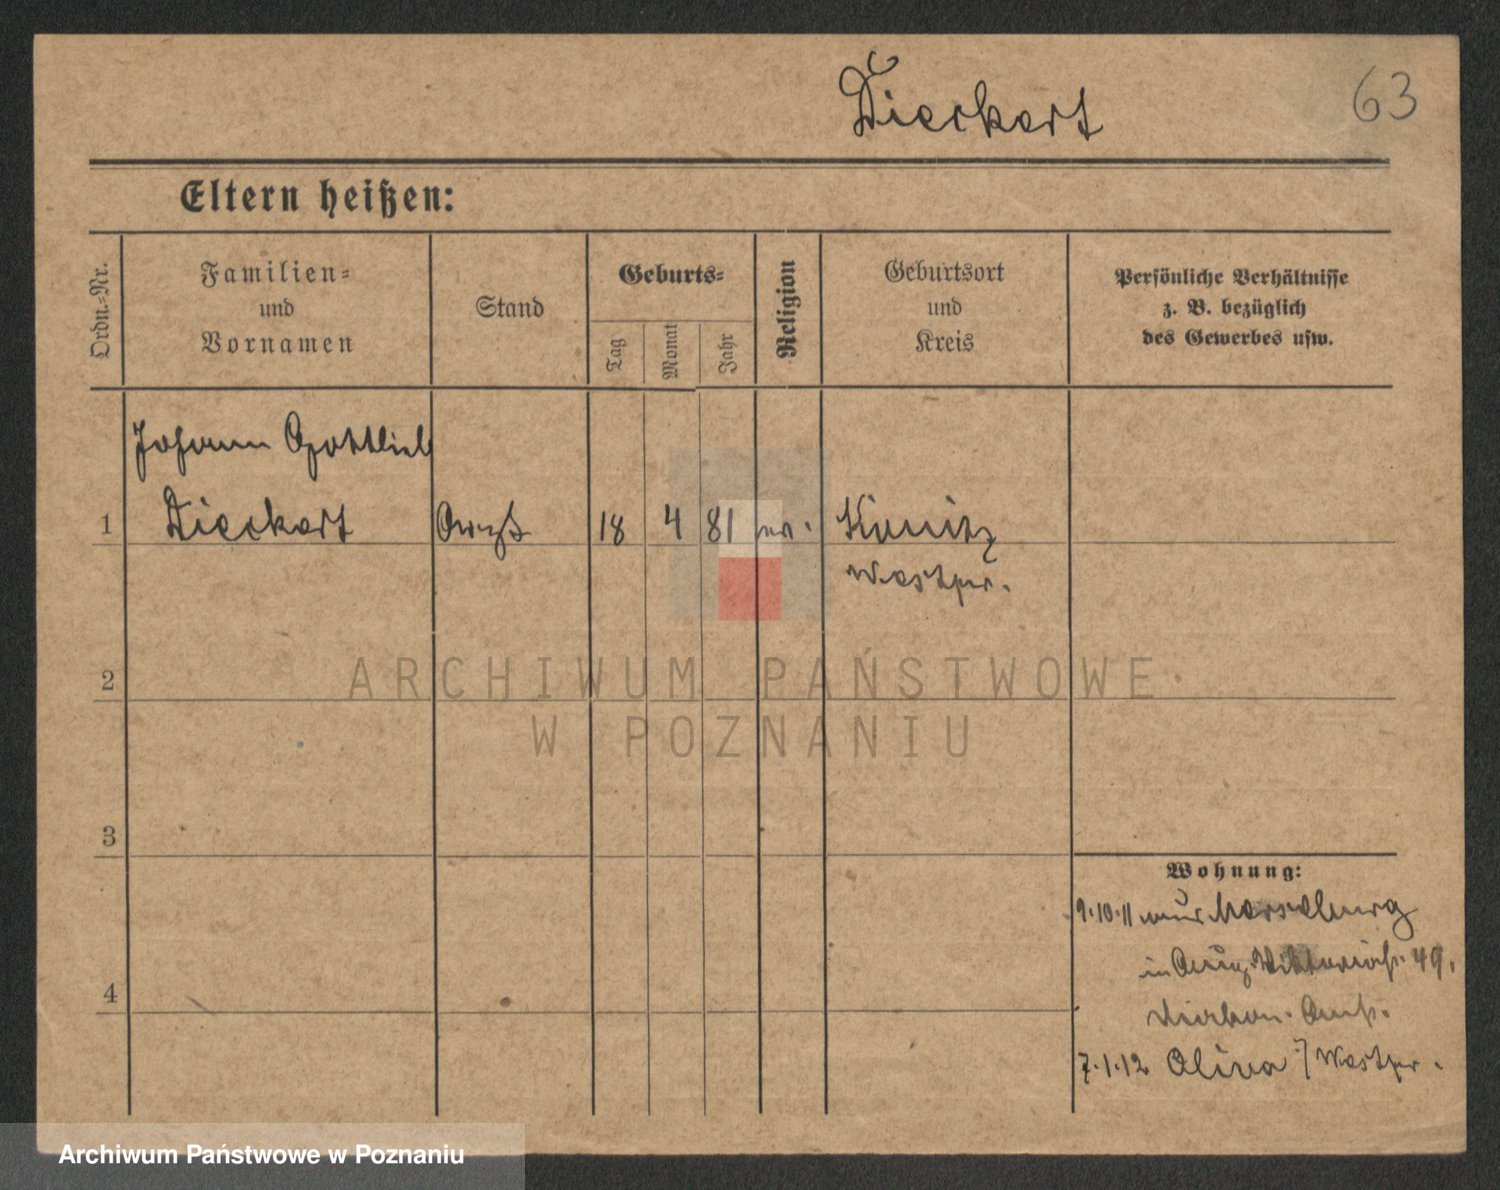 Dieckert
63
Eltern heißen:
Ordn.-Nr.
Familien-
und
Vornamen
Stand
Geburts-
Tag
Monat
Jahr
Religion
Geburtsort
und
Kreis
Persönliche Verhältnisse
z. B. bezüglich
des Gewerbes usw.
Johann Gottlieb
1 Dieckert Arzt 18 4 81 ev. Konitz
Westpr.
2
3
4
ARCHIWUM PAŃSTWOWE
W POZNANIU
Wohnung:
9.10.11 aus Merseburg
in Aug. Viktoriastr. 49.
Diakon. Anst.
7.1.12 Oliva / Westpr.
Archiwum Państwowe w Poznaniu